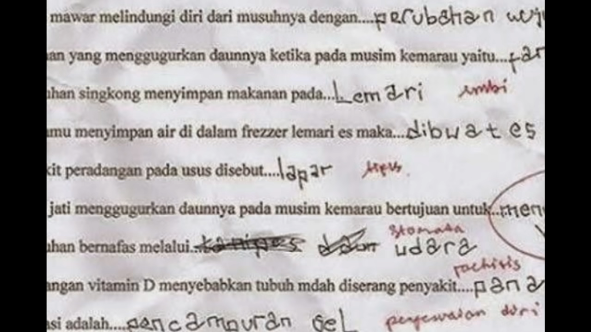 mawar melindungi diri dari musuhnya dengan....perubahan wuj
an yang menggugurkan daunnya ketika pada musim kemarau yaitu...
han singkong menyimpan makanan pada...Lemari umbi
mu menyimpan air di dalam frezzer lemari es maka...dibuat es
kit peradangan pada usus disebut....lapar tipus.
jati menggugurkan daunnya pada musim kemarau bertujuan untuk..men
stomata
han bernafas melalui. daun udara
rachitis
angan vitamin D menyebabkan tubuh mdah diserang penyakit....pana
si adalah....pencampuran sel penyesuaian diri